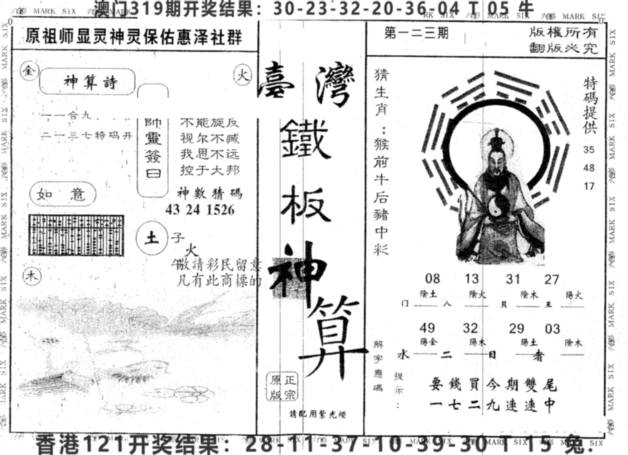 澳门319期开奖结果：30-23-32-20-36-04 T 05 牛
原祖师显灵神灵保佑惠泽社群
金
神算詩
火
一一合九
二一三七特码开
師靈簽曰
不能旋反
視尔不臧
我思不远
控于大邦
如意
神數猜碼
43 24 1526
土
子
火
午
敬請彩民留意
凡有此商標的
木
臺灣
鐵板神算
正宗
原版
請配用紫光燈
第一二三期
版權所有
翻版必究
猜生肖：猴前牛后豬中彩
特碼提供
35
48
17
08 13 31 27
陰土 陰火 陰木 陽火
門 八 貝 王
49 32 29 03
陽金 陽木 陽土 陰木
水 二 日 者
解字應碼
提示：
要錢買今期雙尾
一七二九連連中
香港121开奖结果：28-11-37-10-39-30 T 15 兔.
MARK SIX